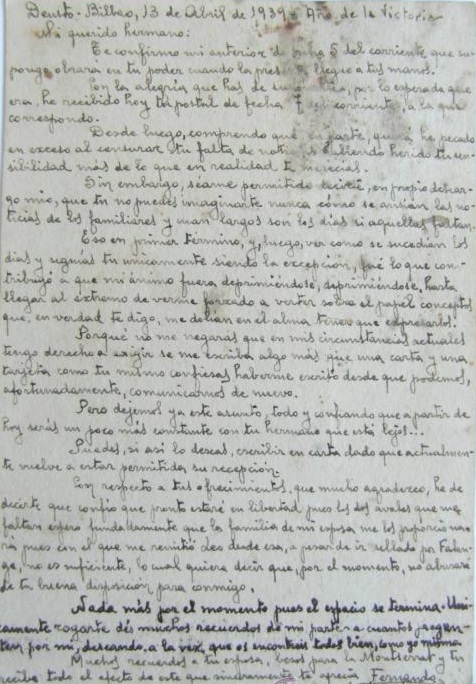 Deusto - Bilbao, 13 de Abril de 1939 - Año de la Victoria
Mi querido hermano:
Te confirmo mi anterior de fecha 5 del corriente que su-
pongo obrará en tu poder cuando la presente llegue a tus manos.
Con la alegría que has de por lo esperada que
era, he recibido hoy tu postal de fecha del corriente, a la que
correspondo.
Desde luego, comprendo que, en parte, quizá he pecado
en exceso al censurar tu falta de noticias habiendo herido tu sen-
sibilidad más de lo que en realidad te merecías.
Sin embargo, séame permitido decirte, en propio descar-
go mío, que tu no puedes imaginarte nunca cómo se ansían las no-
ticias de los familiares y cuan largos son los días si aquellas faltan.
Eso en primer término, y, luego, ver como se sucedían los
días y seguías tu unicamente siendo la excepción, fué lo que con-
tribuyó a que mi ánimo fuera deprimiéndose, deprimiéndose, hasta
llegar al extremo de verme forzado a verter sobre el papel conceptos
que, en verdad te digo, me dolían en el alma tener que expresarlos.
Porqué no me negarás que en mis circunstancias actuales
tengo derecho a exigir se me escriba algo más que una carta y una
tarjeta como tu mismo confiesas haberme escrito desde que podemos,
afortunadamente, comunicarnos de nuevo.
Pero dejemos ya este asunto, todo y confiando que a partir de
hoy serás un poco más constante con tu hermano que está lejos...
Puedes, si así lo deseas, escribir en carta dado que actualmen-
te vuelve a estar permitida su recepción.
Con respecto a tus ofrecimientos, que mucho agradezco, he de
decirte que confío que pronto estaré en libertad pues los dos avales que me
faltan espero fundadamente que la familia de mi esposa me los proporcio-
nará pues con el que me remitió desde esa, a pesar de ir sellado por Falan-
ge, no es suficiente, lo cual quiere decir que, por el momento, no abusaré
de tu buena disposición para conmigo.
Nada más por el momento pues el espacio se termina. Uni-
camente rogarte dés muchos recuerdos de mi parte a cuantos pregun-
ten por mi, deseando, a la vez, que os encontréis todos bien, como yo mismo.
Muchos recuerdos a tu esposa, besos para la Montserrat y tu
recibe todo el afecto de este que sinceramente te aprecia Fernando